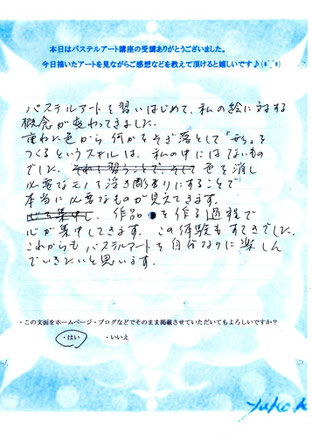 本日はパステルアート講座の受講ありがとうございました。
今日描いたアートを見ながらご感想などを教えて頂けると嬉しいです♪(*^_^*)
パステルアートを習いはじめて、私の絵に対する
概念が変わってきました。
重ねた色から何かをそぎ落として「形」を
つくるというスタイルは、私の中にはないもの
でした。色を消し
必要なモノを浮き彫りにすることで
本当に必要なものが見えてきます。
作品を作る過程で
心が集中してきます。この体験もすてきでした。
これからもパステルアートを自分なりに楽しん
でいきたいと思います。
・この文面をホームページ・ブログなどでそのまま掲載させていただいてもよろしいですか?
・はい ・いいえ
Yuko.K